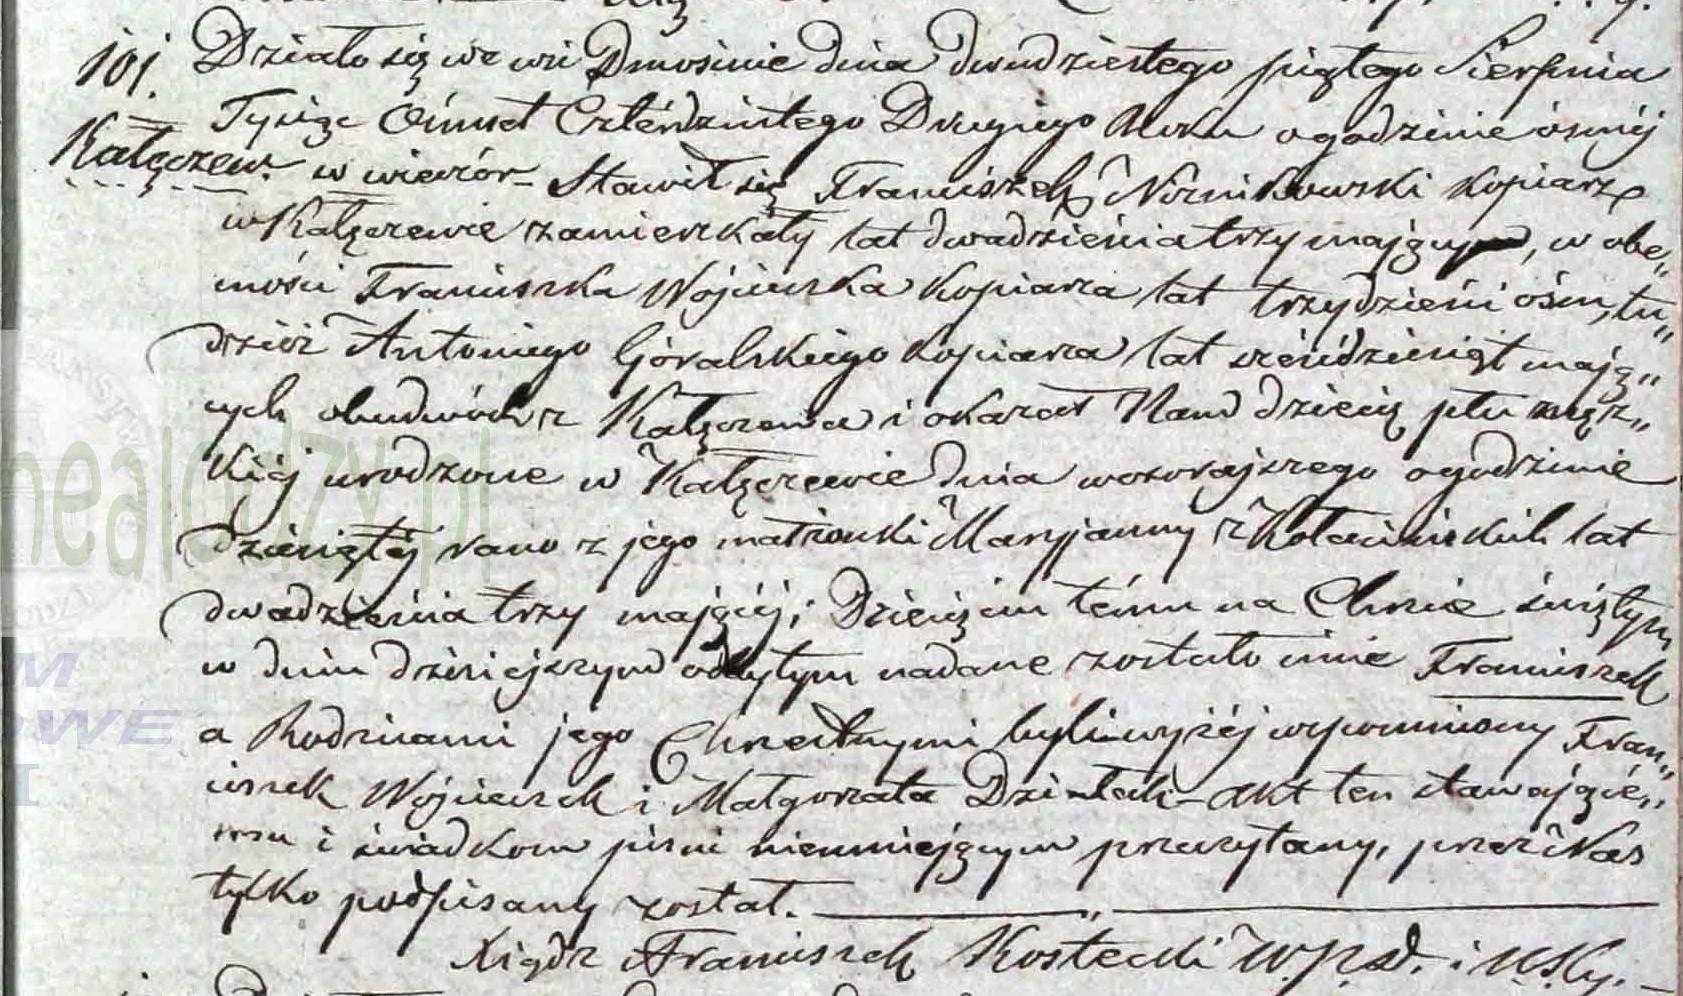 101. Działo się we wsi Dmosinie dnia dwudziestego piątego Sierpnia
Tysiąc Ośmset Czterdziestego Drugiego Roku o godzinie ósméj
Kałęczew. w wieczór – Stawił się Franciszek Woźnikowski kopiarz
w Kałęczewie zamieszkały lat dwadzieścia trzy mający, w obe„
cności Franciszka Wójciecha kopiarza lat trzydzieści ośm, tu„
dzież Antoniego Góralskiego kopiarza lat sześćdziesiąt mają„
cych obudwóch z Kałęczewa i okazał Nam dziecię płci męz„
kiéj urodzone w Kałęczewie dnia wczorajszego o godzinie
dziesiątéj rano z jego małżonki Maryjanny z Kołacińskich lat
dwadzieścia trzy mającéj; Dziecięciu temu na Chrzcie świętym
w dniu dzisiejszym odbytym nadane zostało imie Franciszek
a Rodzicami jego Chrzestnymi byli wyżéj wspomniony Fran„
ciszek Wójciecsek i Małgorzata – akt ten stawającé„
mu i świadkom pisać nieumiejącym przeczytany, przez Nas
tylko podpisany został.
Xiądz Franciszek Kostecki